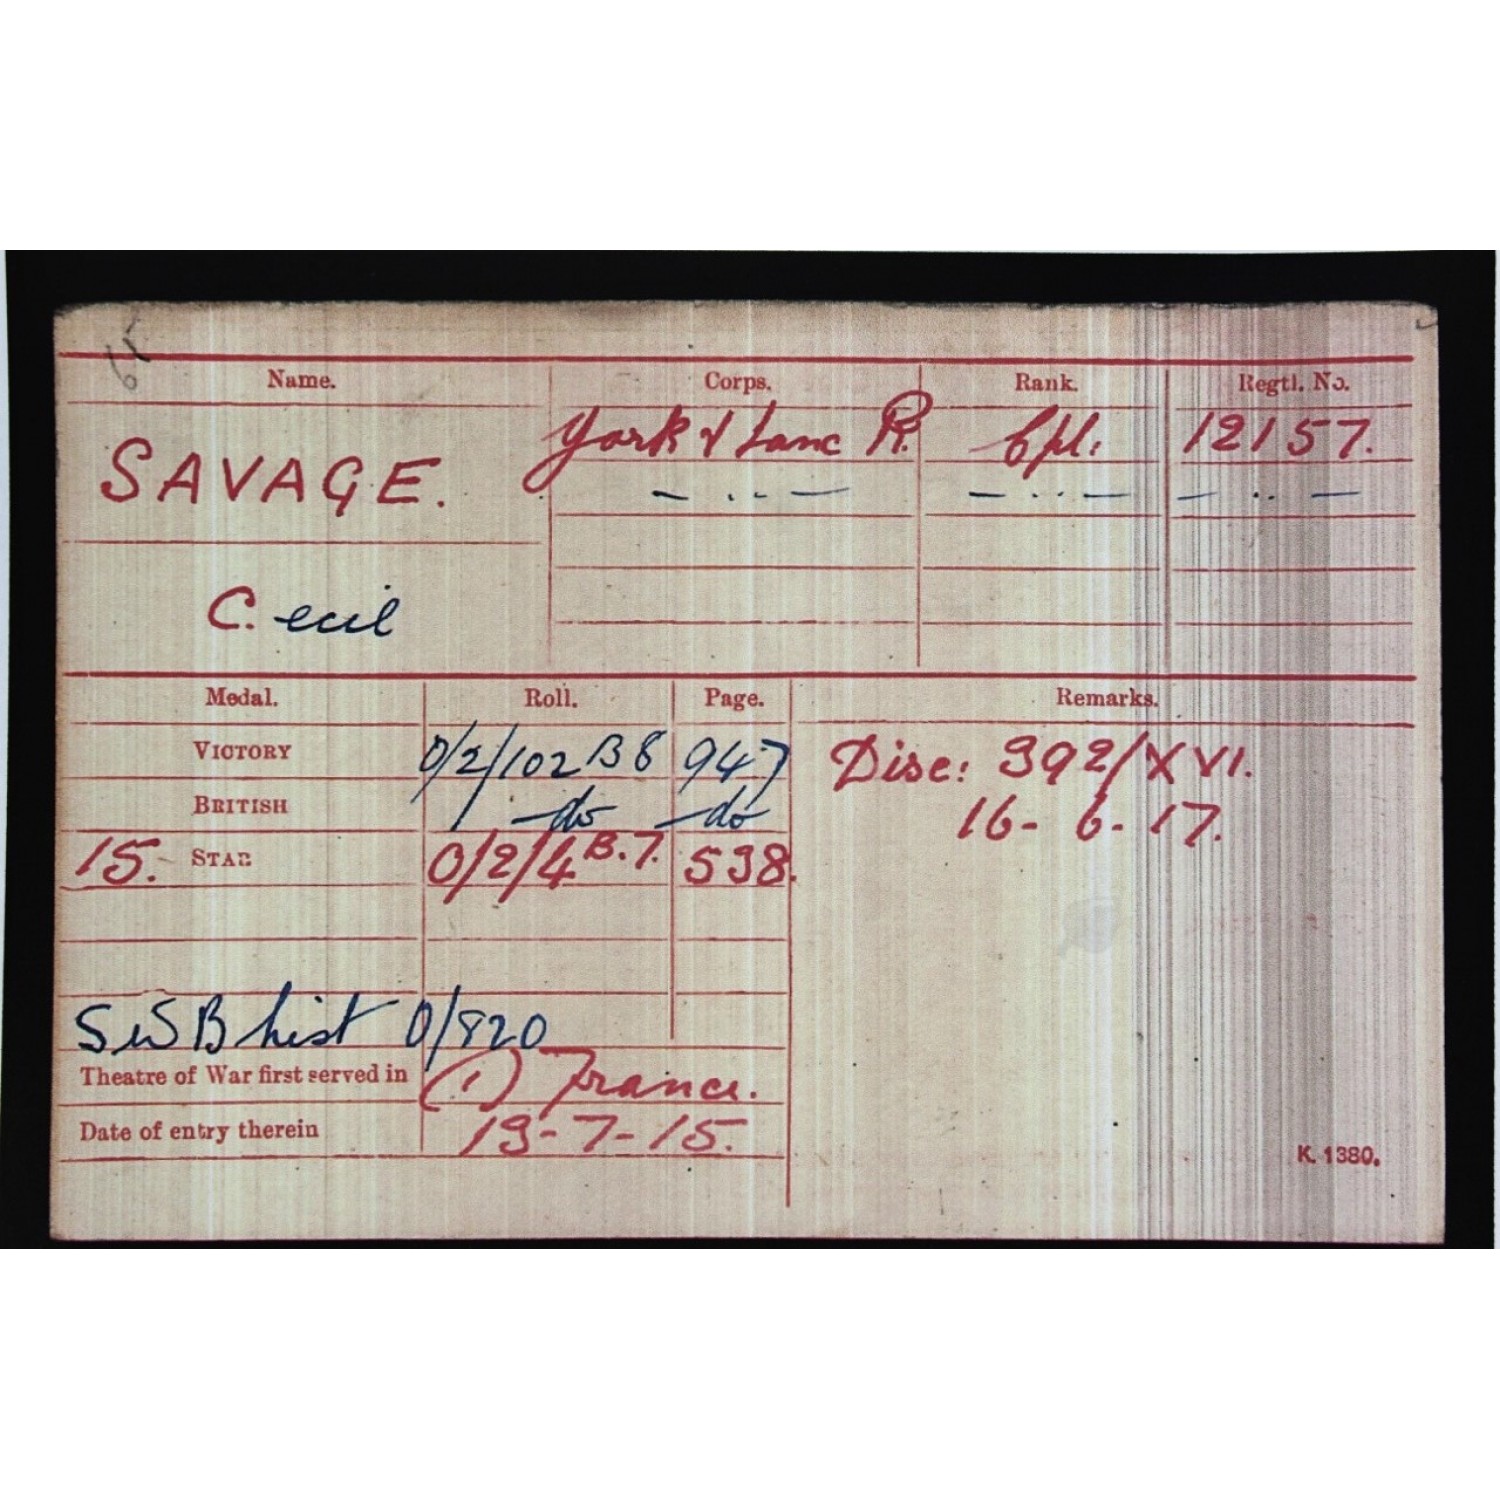 65
Name. Corps. Rank. Regtl. No.
SAVAGE. York & Lanc R. Cpl. 12157.
— .. — — .. — — .. —
C. ecil
Medal. Roll. Page. Remarks.
VICTORY 0/2/102 B8 947 Disc: 392/XVI.
BRITISH do do 16-6-17.
15. STAR 0/2/4 B.7. 538.
SWB list 0/820
Theatre of War first served in (1) France.
Date of entry therein 13-7-15.
K. 1380.